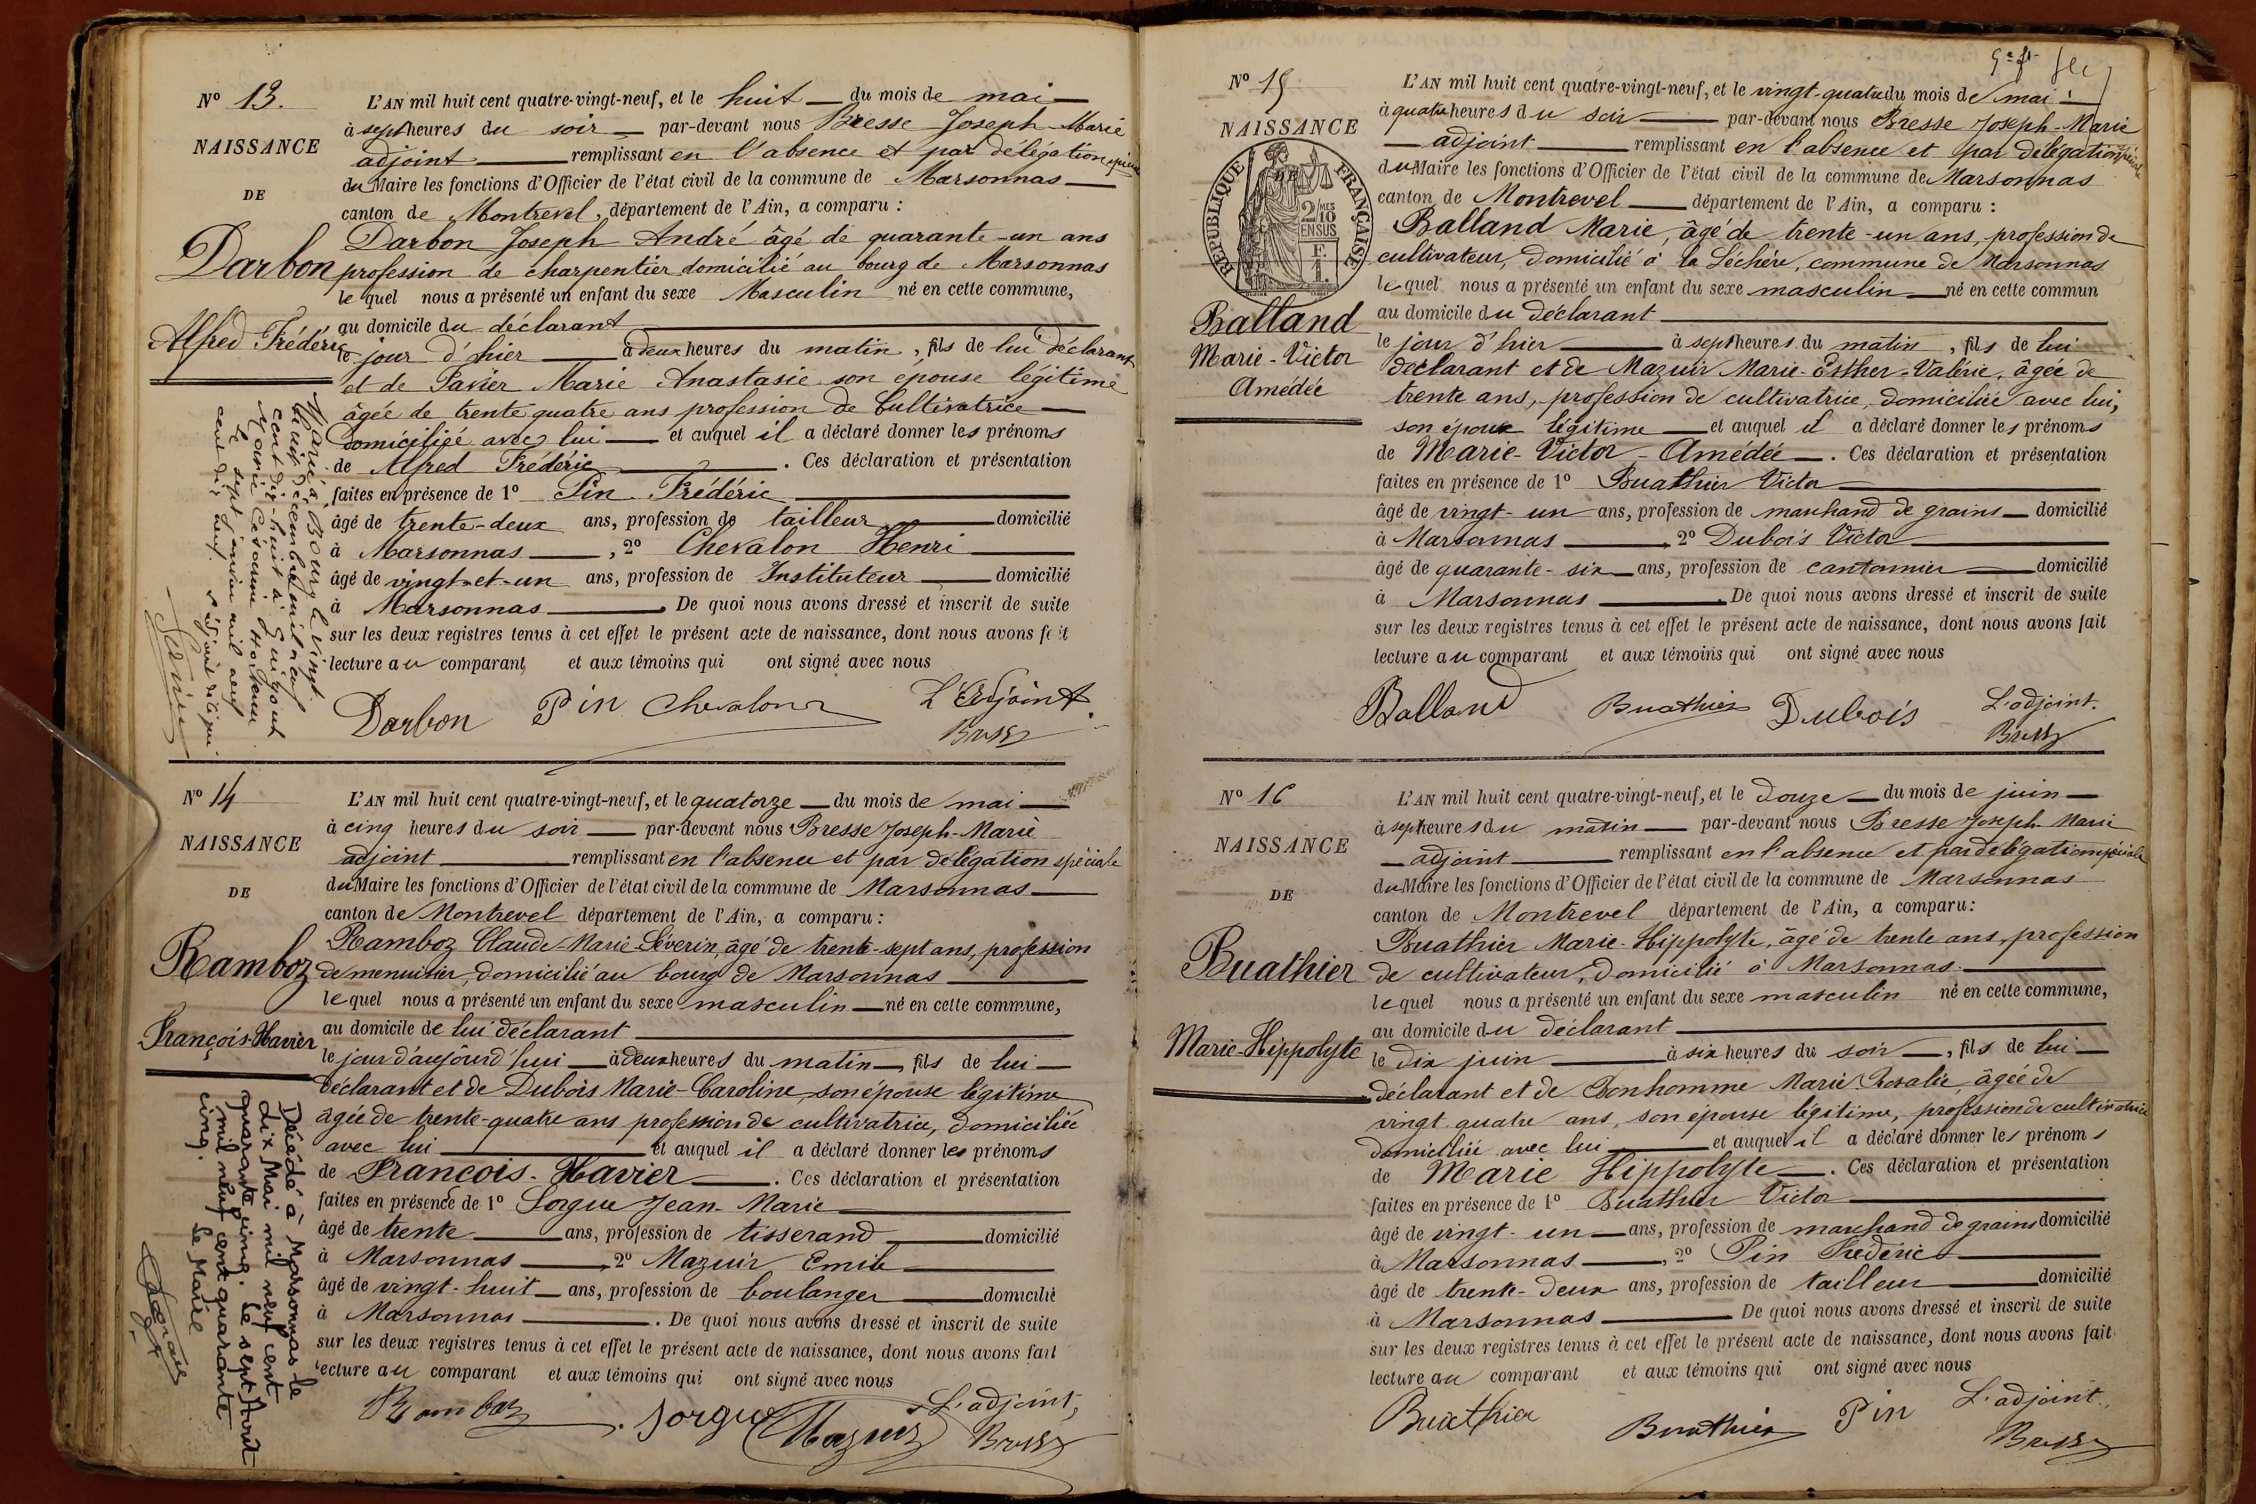 N° 13.
NAISSANCE
DE
Darbon
Alfred Frédéric
L'AN mil huit cent quatre-vingt-neuf, et le huit du mois de mai
à sept heures du soir par-devant nous Bresse Joseph-Marie
adjoint remplissant en l'absence et par délégation spéciale
du Maire les fonctions d'Officier de l'état civil de la commune de Marsonnas
canton de Montrevel, département de l'Ain, a comparu :
Darbon Joseph André âgé de quarante-un ans
profession de charpentier domicilié au bourg de Marsonnas
lequel nous a présenté un enfant du sexe Masculin né en cette commune,
au domicile du déclarant
le jour d'hier à deux heures du matin, fils de lui déclarant
et de Pavier Marie Anastasie son épouse légitime
âgée de trente quatre ans profession de Cultivatrice
domiciliée avec lui et auquel il a déclaré donner les prénoms
de Alfred Frédéric. Ces déclaration et présentation
faites en présence de 1° Pin Frédéric
âgé de trente-deux ans, profession de tailleur domicilié
à Marsonnas, 2° Chevalon Henri
âgé de vingt-et-un ans, profession de Instituteur domicilié
à Marsonnas. De quoi nous avons dressé et inscrit de suite
sur les deux registres tenus à cet effet le présent acte de naissance, dont nous avons fait
lecture au comparant et aux témoins qui ont signé avec nous
Darbon Pin Chevalon L'Adjoint
Bresse
Marié à Bourg le vingt
huit décembre mil neuf
cent dix-huit à Guigout
Marie
le sept janvier mil neuf
cent dix neuf
N° 14
NAISSANCE
DE
Ramboz
François-Xavier
L'AN mil huit cent quatre-vingt-neuf, et le quatorze du mois de mai
à cinq heures du soir par-devant nous Bresse Joseph-Marie
adjoint remplissant en l'absence et par délégation spéciale
du Maire les fonctions d'Officier de l'état civil de la commune de Marsonnas
canton de Montrevel département de l'Ain, a comparu :
Ramboz Claude-Marie-Séverin, âgé de trente-sept ans, profession
de menuisier, domicilié au bourg de Marsonnas
lequel nous a présenté un enfant du sexe masculin né en cette commune,
au domicile de lui déclarant
le jour d'aujourd'hui à deux heures du matin, fils de lui
déclarant et de Dubois Marie-Caroline son épouse légitime
âgée de trente-quatre ans profession de cultivatrice, domiciliée
avec lui et auquel il a déclaré donner les prénoms
de François-Xavier. Ces déclaration et présentation
faites en présence de 1° Sorgue Jean-Marie
âgé de trente ans, profession de tisserand domicilié
à Marsonnas, 2° Mazuir Emile
âgé de vingt-huit ans, profession de boulanger domicilié
à Marsonnas. De quoi nous avons dressé et inscrit de suite
sur les deux registres tenus à cet effet le présent acte de naissance, dont nous avons fait
lecture au comparant et aux témoins qui ont signé avec nous
Ramboz Sorgue Mazuir L'adjoint,
Bresse
Décédé à Marsonnas le
dix Mai mil neuf cent
quarante cinq. Le sept Août
mil neuf cent quarante
cinq.
Le Maire
N° 15
NAISSANCE
RÉPUBLIQUE FRANÇAISE
2/10 MES
EN SUS
F.
1.
Balland
Marie-Victor
Amédée
L'AN mil huit cent quatre-vingt-neuf, et le vingt-quatre du mois de mai
à quatre heures du soir par-devant nous Bresse Joseph-Marie
adjoint remplissant en l'absence et par délégation spéciale
du Maire les fonctions d'Officier de l'état civil de la commune de Marsonnas
canton de Montrevel département de l'Ain, a comparu :
Balland Marie, âgé de trente-un ans, profession de
cultivateur, domicilié à la Léchère, commune de Marsonnas
lequel nous a présenté un enfant du sexe masculin né en cette commun
au domicile du déclarant
le jour d'hier à sept heures du matin, fils de lui
déclarant et de Mazuir Marie-Esther-Valérie, âgée de
trente ans, profession de cultivatrice, domiciliée avec lui,
son épouse légitime et auquel il a déclaré donner les prénoms
de Marie-Victor-Amédée. Ces déclaration et présentation
faites en présence de 1° Buathier Victor
âgé de vingt-un ans, profession de marchand de grains domicilié
à Marsonnas, 2° Dubois Victor
âgé de quarante-six ans, profession de cantonnier domicilié
à Marsonnas. De quoi nous avons dressé et inscrit de suite
sur les deux registres tenus à cet effet le présent acte de naissance, dont nous avons fait
lecture au comparant et aux témoins qui ont signé avec nous
Balland Buathier Dubois L'adjoint.
Bresse
N° 16
NAISSANCE
DE
Buathier
Marie-Hippolyte
L'AN mil huit cent quatre-vingt-neuf, et le douze du mois de juin
à sept heures du matin par-devant nous Bresse Joseph-Marie
adjoint remplissant en l'absence et par délégation spéciale
du Maire les fonctions d'Officier de l'état civil de la commune de Marsonnas
canton de Montrevel département de l'Ain, a comparu :
Buathier Marie-Hippolyte, âgé de trente ans, profession
de cultivateur, domicilié à Marsonnas.
lequel nous a présenté un enfant du sexe masculin né en cette commune,
au domicile du déclarant
le dix juin à six heures du soir, fils de lui
déclarant et de Bonhomme Marie Rosalie âgée de
vingt quatre ans, son épouse légitime, profession de cultivatrice
domiciliée avec lui et auquel il a déclaré donner les prénoms
de Marie Hippolyte. Ces déclaration et présentation
faites en présence de 1° Buathier Victor
âgé de vingt-un ans, profession de marchand de grains domicilié
à Marsonnas, 2° Pin Frédéric
âgé de trente-deux ans, profession de tailleur domicilié
à Marsonnas De quoi nous avons dressé et inscrit de suite
sur les deux registres tenus à cet effet le présent acte de naissance, dont nous avons fait
lecture au comparant et aux témoins qui ont signé avec nous
Buathier Buathier Pin L'adjoint.
Bresse